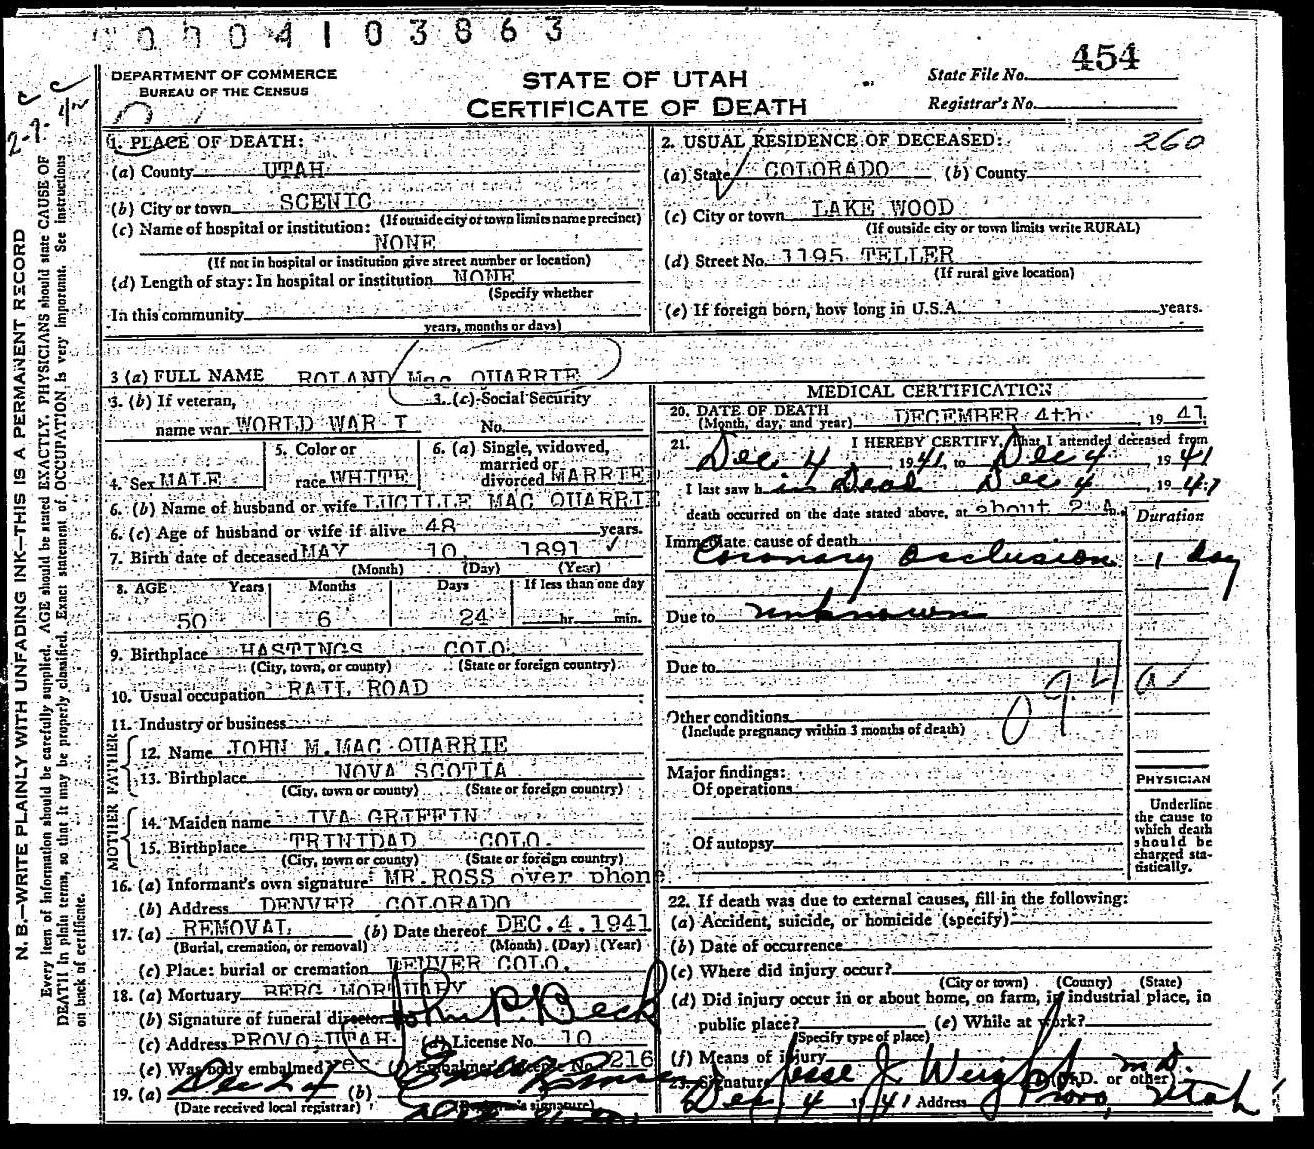 0004103863
454
DEPARTMENT OF COMMERCE
BUREAU OF THE CENSUS
STATE OF UTAH
CERTIFICATE OF DEATH
State File No.
Registrar's No.
N. B.—WRITE PLAINLY WITH UNFADING INK—THIS IS A PERMANENT RECORD
Every item of information should be carefully supplied. AGE should be stated EXACTLY. PHYSICIANS should state CAUSE OF
DEATH in plain terms, so that it may be properly classified. Exact statement of OCCUPATION is very important. See instructions
on back of certificate.
1. PLACE OF DEATH:
(a) County UTAH
(b) City or town SCENIC
(If outside city or town limits name precinct)
(c) Name of hospital or institution:
NONE
(If not in hospital or institution give street number or location)
(d) Length of stay: In hospital or institution NONE
(Specify whether
In this community
years, months or days)
2. USUAL RESIDENCE OF DECEASED: 260
(a) State COLORADO (b) County
(c) City or town LAKE WOOD
(If outside city or town limits write RURAL)
(d) Street No. 1195 TELLER
(If rural give location)
(e) If foreign born, how long in U.S.A. years.
3 (a) FULL NAME ROLAND Mac QUARRIE
3. (b) If veteran, 3. (c) Social Security
name war WORLD WAR I No.
4. Sex MALE 5. Color or race WHITE 6. (a) Single, widowed, married or divorced MARRIED
6. (b) Name of husband or wife LUCILLE MAC QUARRIE
6. (c) Age of husband or wife if alive 48 years.
7. Birth date of deceased MAY 10, 1891
(Month) (Day) (Year)
8. AGE Years Months Days If less than one day
50 6 24 hr. min.
9. Birthplace HASTINGS COLO.
(City, town, or county) (State or foreign country)
10. Usual occupation RAIL ROAD
11. Industry or business
FATHER
12. Name JOHN M. MAC QUARRIE
13. Birthplace NOVA SCOTIA
(City, town or county) (State or foreign country)
MOTHER
14. Maiden name IVA GRIFFIN
15. Birthplace TRINIDAD COLO.
(City, town or county) (State or foreign country)
16. (a) Informant's own signature MR. ROSS over phone
(b) Address DENVER COLORADO
17. (a) REMOVAL (b) Date thereof DEC. 4. 1941
(Burial, cremation, or removal) (Month) (Day) (Year)
(c) Place: burial or cremation DENVER COLO.
18. (a) Mortuary BERG MORTUARY
(b) Signature of funeral director John P. Beck
(c) Address PROVO, UTAH (d) License No. 10
(e) Was body embalmed? Yes Embalmer's License No. 216
19. (a) Dec 24 (b)
(Date received local registrar) (Registrar's signature)
MEDICAL CERTIFICATION
20. DATE OF DEATH
(Month, day, and year) DECEMBER 4th 1941
21. I HEREBY CERTIFY, That I attended deceased from
Dec 4 1941, to Dec 4 1941
I last saw him Dead Dec 4 1941
death occurred on the date stated above, at about 2 A m.
Duration
Immediate cause of death
Coronary Occlusion 1 day
Due to unknown
Due to
094 a
Other conditions
(Include pregnancy within 3 months of death)
Major findings:
Of operations
Of autopsy
PHYSICIAN
Underline
the cause to
which death
should be
charged sta-
tistically.
22. If death was due to external causes, fill in the following:
(a) Accident, suicide, or homicide (specify)
(b) Date of occurrence
(c) Where did injury occur?
(City or town) (County) (State)
(d) Did injury occur in or about home, on farm, in industrial place, in
public place? (e) While at work?
(Specify type of place)
(f) Means of injury
23. Signature Jesse J Weight M.D.
(M.D. or other)
Dec 4 1941 Address Provo, Utah